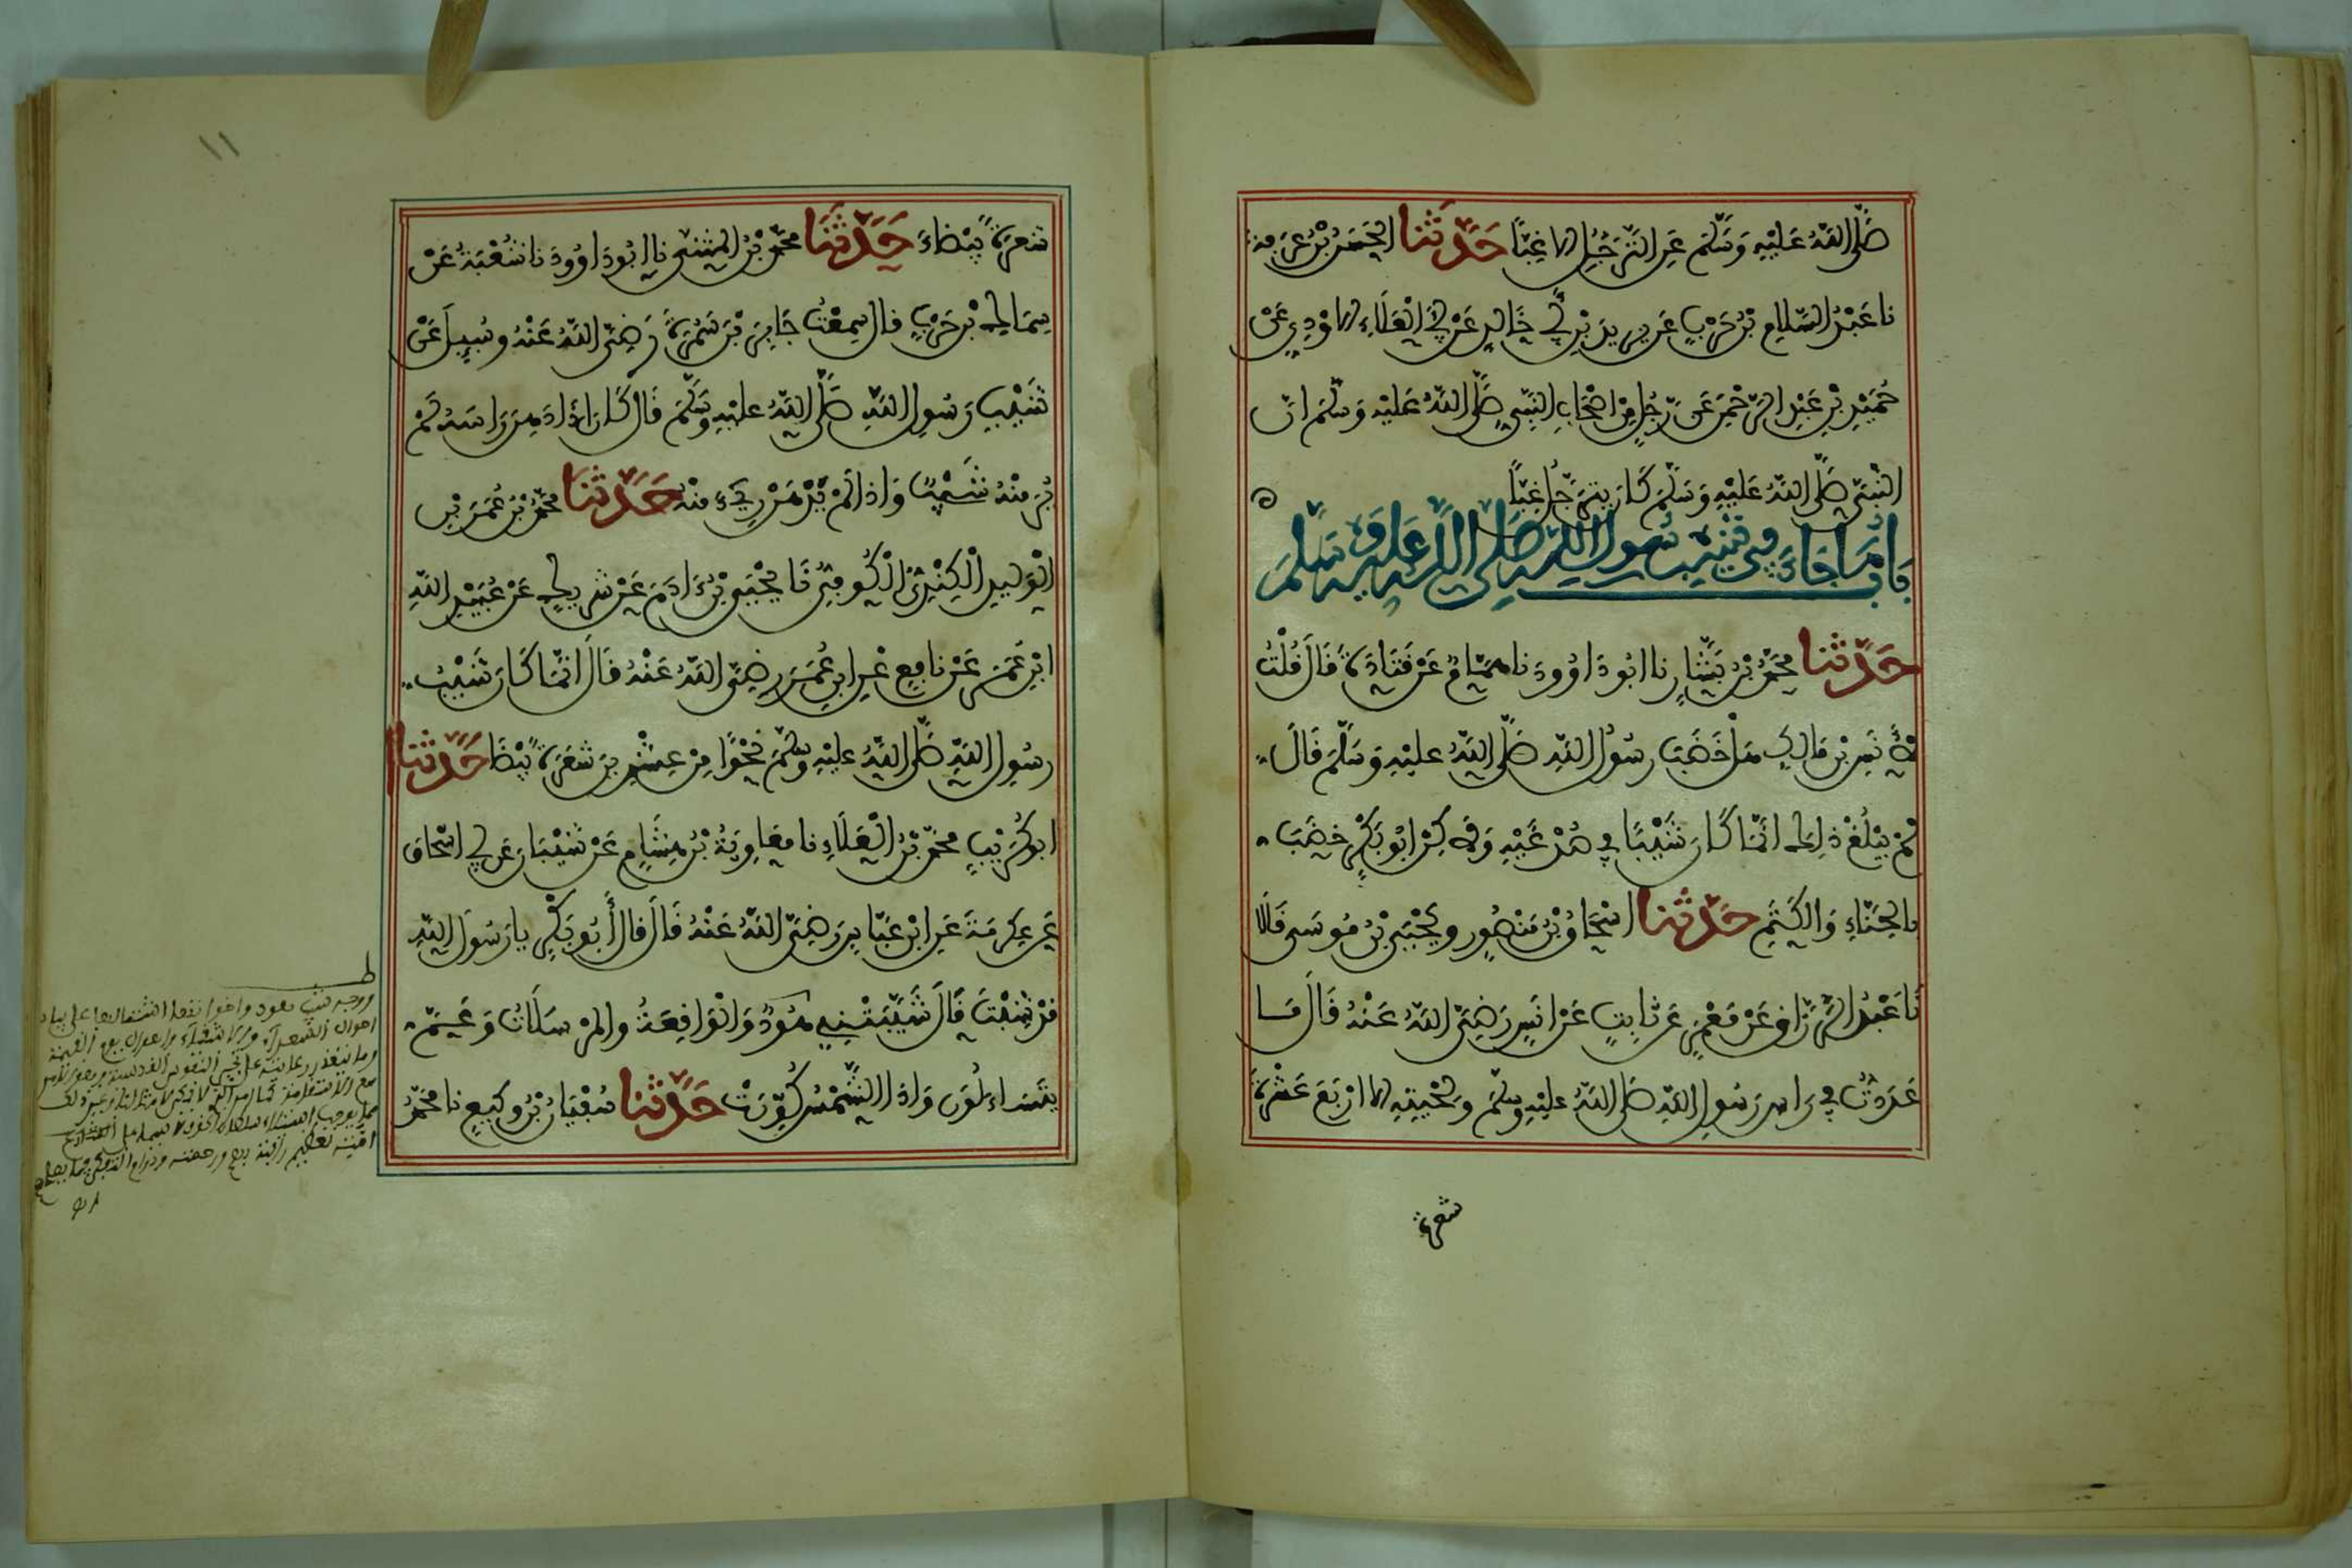 صَلَّى اللَّهُ عَلَيْهِ وَسَلَّمَ عَنِ التَّرَجُّلِ إلا غِبًّا حَدَّثَنَا الحَسَنُ بْنُ عَرَفَةَ
نا عَبْدُ السَّلامِ بْنُ حَرْبٍ عَن يزيدَ بْنِ أبي خَالدٍ عَنْ أبي العَلَاءِ الاوْدِيِ عَنْ
حُمَيْدِ بْنِ عَبْدِ الرَّحْمَنِ عَنْ رَّجُلٍ مِنْ اصْحَابِ النَّبِيِّ صَلَّى اللَّهُ عَلَيْهِ وَسَلَّمَ انَّ
النَّبِيَّ صَلَّى اللَّهُ عَلَيْهِ وَسَلَّمَ كَانَ يَتَرَجَّلُ غِبًّا ه
بَابُ مَا جَاءَ فِي شَيْبِ رَسُولِ اللَّهِ صَلَّى اللَّهُ عَلَيْهِ وَسَلَّمَ
حَدَّثَنَا مُحَمَّدُ بْنُ بَشَّارٍ نا ابُو دَاوُودَ نا هَمَّامٌ عَنْ قَتَادَةَ قَالَ قُلْتُ
لِأَنَسِ بْنِ مَالِكٍ هَلْ خَضَبَ رَسُولُ اللَّهِ صَلَّى اللَّهُ عَلَيْهِ وَسَلَّمَ قَالَ
لَمْ يَبْلُغْ ذَلِكَ انَّمَا كَانَ شَيْبًا فِي صُدْغَيْهِ وَلَكِنْ ابُو بَكْرٍ خَضَبَ
بالحِنَّاءِ وَالكَتَمِ حَدَّثَنَا اسْحَاقُ بْنُ مَنْصُورٍ ويَحْيَى بْنُ مُوسَى قَالَا
نَا عَبْدُ الرَّزَّاقِ عَنْ مَعْمَرٍ عَنْ ثابِتٍ عَنْ انَسٍ رَضِيَ اللَّهُ عَنْهُ قَالَ مَا
عَدَدْتُ فِي رَاسِ رَسُولِ اللَّهِ صَلَّى اللَّهُ عَلَيْهِ وسَلَّمَ وَلِحْيَتِهِ الا ارْبَعَ عَشْرَةَ
شعرة
١١
شَعرَةً بَيْضَاءَ حَدَّثَنَا مُحَمَّدُ بْنُ المثَنَّى نا ابُو دَاوُودَ نا شُعْبَةُ عَنْ
سِمَاكِ بْنِ حَرْبٍ قال سَمِعْتُ جَابِرَ بْنَ سَمُرَةَ رَضِيَ اللَّهُ عَنْهُ وسُيِلَ عَنْ
شَيْبِ رَسُولِ اللَّهِ صَلَّى اللَّهُ عَلَيْهِ وَسَلَّمَ قَالَ كَانَ إذَا دَهَنَ رَاسَهُ لَمْ
يُرَ مِنْهُ شَيْبٌ وَاذا لَمْ يَدْهَنْ رِيءَ مِنْهُ حَدَّثَنَا مُحَمَّدُ بْنُ عُمَرَ بْنِ
الْوَلِيدِ الْكِنْدِيُّ الْكُوفِيُّ نَا يَحْيَى بْنُ ءَادَمَ عَنْ شَرِيكٍ عَنْ عُبَيْدِ اللَّهِ
ابْنِ عُمَرَ عَنْ نَافِعٍ عَنِ ابنِ عُمَرَ رَضِيَ اللَّهُ عَنْهُ قَالَ انَّمَا كَانَ شَيْبُ
رسُولِ اللَّهِ صَلَّى اللَّهُ عَلَيْهِ وسَلَّمَ نَحْوًا مِنْ عِشْرِينَ شَعَرَةً بَيْضَا حَدَّثَنَا
ابو كُرَيْبٍ مُحَمَّدُ بْنُ العَلَاءِ نا مُعَاوِيَةُ بْنُ هِشَامٍ عَنْ شَيْبَانَ عَن أبي اسْحَاقَ
عَن عِكْرِمَةَ عَنِ ابْنِ عَبَّاسٍ رَضِيَ اللَّهُ عَنْهُ قَالَ قال أَبُو بَكْرٍ يا رَسُولَ اللَّهِ
قَدْ شِبْتَ قَالَ شَيَّبَتْنِي هُودٌ وَالْوَاقِعَةُ والمُرْسَلَاتُ وَعَمَّ
يَتَسَاءَلُونَ وَاذَا الشَّمْسُ كُوِّرَتْ حَدَّثَنَا سُفْيَانُ بْنُ وَكِيعٍ نا مُحَمَّدُ